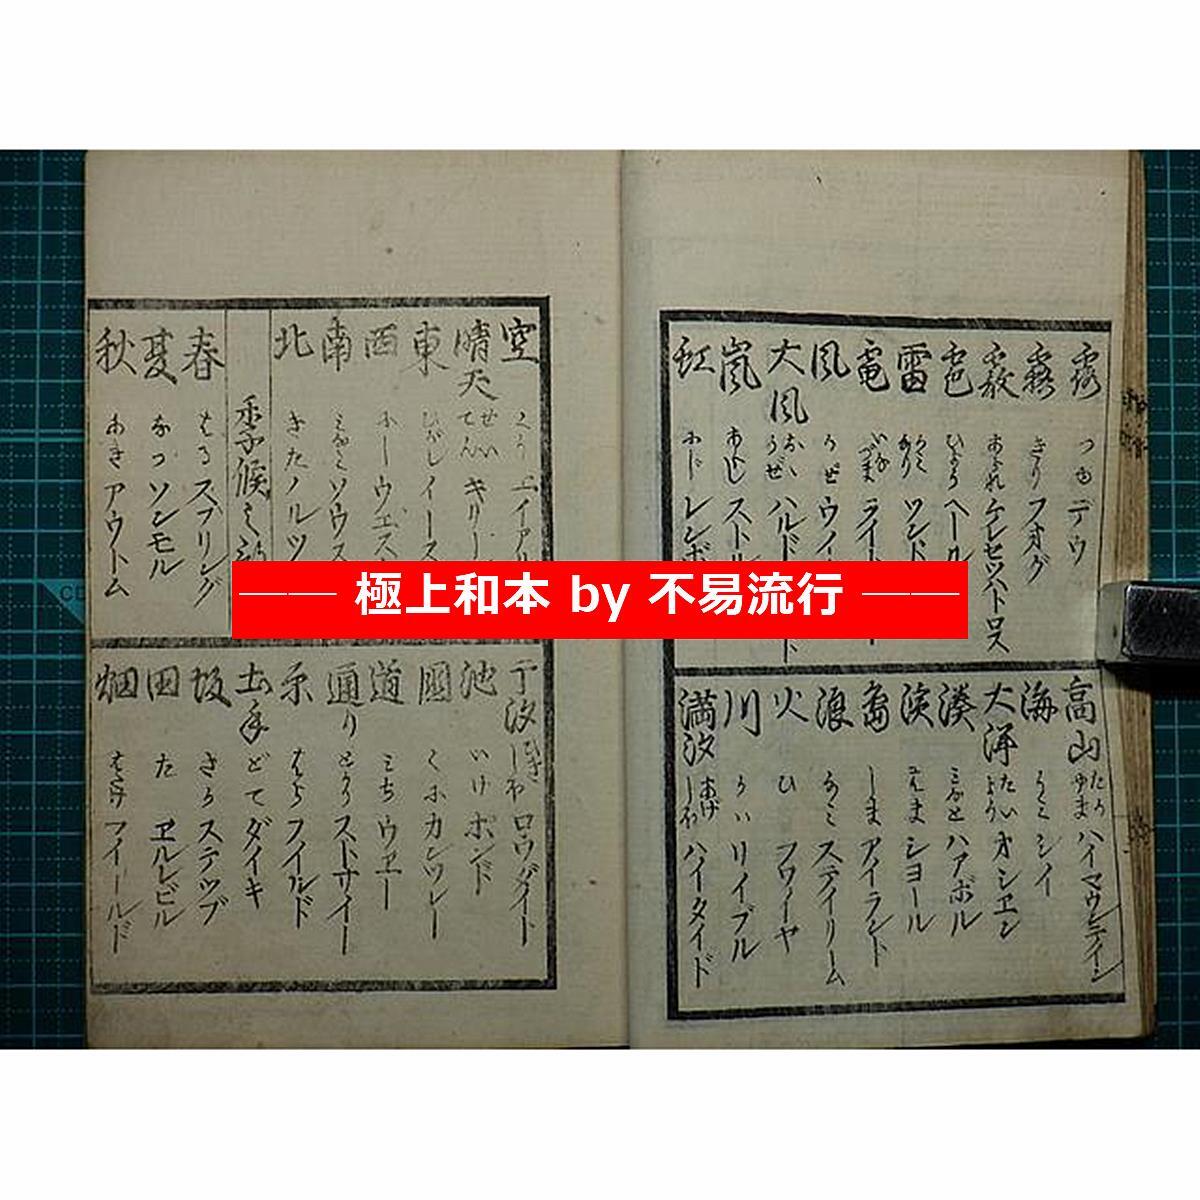 露 つゆ デウ
霧 きり フオグ
霰 あられ ケレセツストロス
雹 ひよう ヘール
雷 かみなり ソンド
電 いなづま ライト
風 かぜ ウイ
大風 おゝかぜ ハルド
嵐 あらし ストル
虹 にじ レンボ
高山 たかやま ハイマウンテイン
海 うみ シイ
大洋 たいよう オシヱン
湊 みなと ハアボル
濱 はま ショール
島 しま アイランド
浪 なみ ステイリーム
火 ひ フワイヤ
川 かい リイブル
満汐 あげしお ハイタイド
空 くう エイアル
晴天 せいてん キリー
東 ひがし イース
西 にし ウエス
南 みなみ ソウス
北 きた ノルツ
季候之
春 はる スプリング
夏 なつ ソンモル
秋 あき アウトム
干汐 ひきしお ロウダイト
池 いけ ポンド
國 くに カンツレー
道 みち ウヱー
通り とをり ストサイー
原 はら フイルド
土手 どて ダイキ
坂 さか ステツプ
田 た ヱルレビル
畑 はたけ フイールド
―― 極上和本 by 不易流行 ――